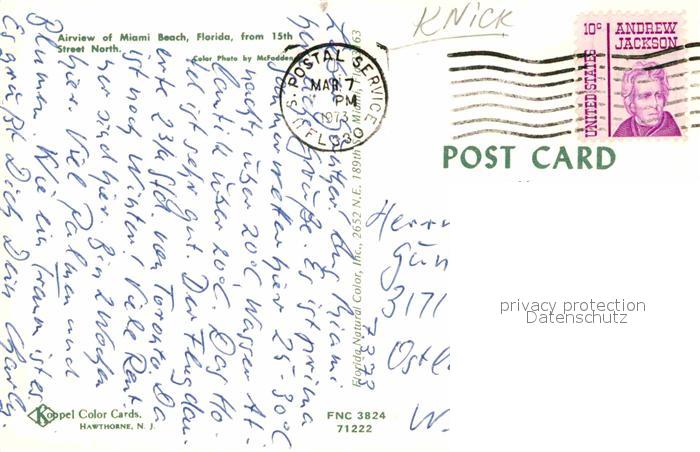 KNICK
Airview of Miami Beach, Florida, from 15th
Street North.
Color Photo by McFadden
U.S. POSTAL SERVICE
MAR 7
PM
1973
FL 330
10c ANDREW
JACKSON
UNITED STATES
POST CARD
Günter! Aus Miami
Grüße. Es ist prima
Sommerwetter hier 25-30°C
nachts über 20°C Wasser At-
lantik über 20°C. Das Ho-
tel ist sehr gut. Der Flug dau-
erte 2 3/4 Std. von Toronto. Da
ist noch Winter! Viele Rent-
ner sind hier. Bin 2 Wochen
hier. Viel Palmen und
Blumen. Wie ein Traum ist es.
Es grüßt Dich Dein
Florida Natural Color, Inc., 2652 N.E. 189th St., Miami, Fla. 33163
Herrn
Gün
3171
Ostl
W.
privacy protection
Datenschutz
Koppel Color Cards.
HAWTHORNE, N. J.
FNC 3824
71222